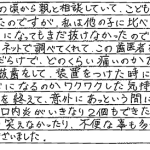 の頃から親と相談していて、こども
たのですが、私は他の子に比べ
になってもまだ抜けなかったので
ネットで調べてくれて、この歯医者
だらけで、どのくらい痛いのか
抜歯をして、装置をつけた時に
になるのかワクワクした気持
を終えて、意外にあっという間に
口内炎がいきなり2個もできた
笑えなかったり、不便な事も多
ざいました。